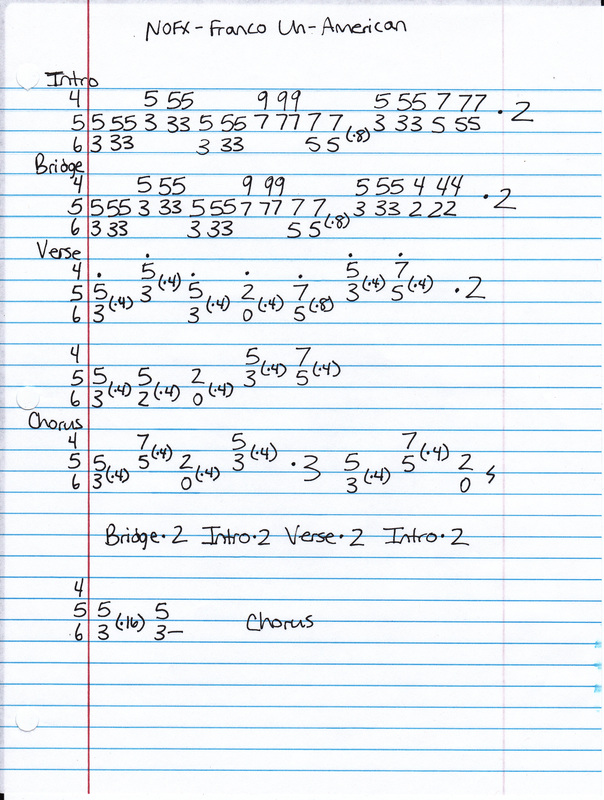 NOFX - Franco Un-American
Intro
4 5 55 9 99 5 55 7 77
5 5 55 3 33 5 55 7 77 7 7 (·8) 3 33 5 55 · 2
6 3 33 3 33 5 5
Bridge
4 5 55 9 99 5 55 4 44
5 5 55 3 33 5 55 7 77 7 7 3 33 2 22 · 2
6 3 33 3 33 5 5 (·8)
Verse
4 · 5 · · · 5 7
5 5 3 (·4) 5 2 7 3 (·4) 5 (·4) · 2
6 3 (·4) 3 (·4) 0 (·4) 5 (·8)
4 5 7
5 5 5 2 3 (·4) 5 (·4)
6 3 (·4) 2 (·4) 0 (·4)
Chorus
4 7 5 7
5 5 5 (·4) 2 3 (·4) · 3 5 5 (·4) 2
6 3 (·4) 0 (·4) 3 (·4) 0
Bridge · 2 Intro · 2 Verse · 2 Intro · 2
4
5 5 5
6 3 (·16) 3- Chorus